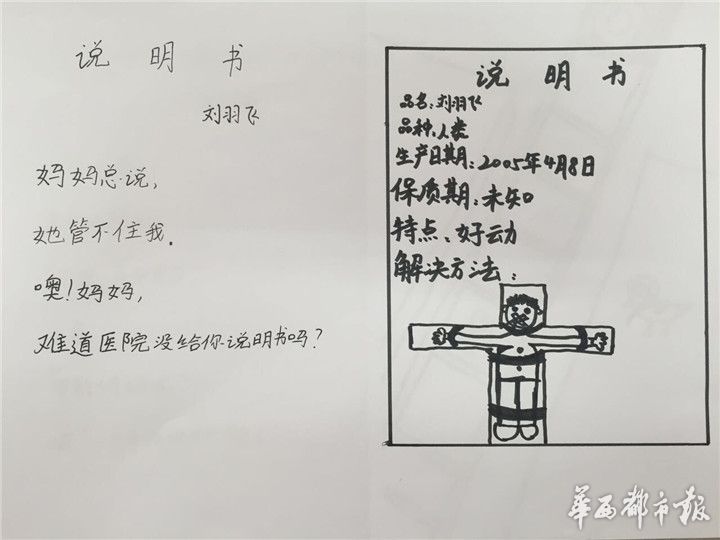 说 明 书
刘羽飞
妈妈总说，
她管不住我．
噢！妈妈，
难道医院没给你说明书吗？
说 明 书
品名：刘羽飞
品种：人类
生产日期：2005年4月8日
保质期：未知
特点：好动
解决方法：
華西都市报